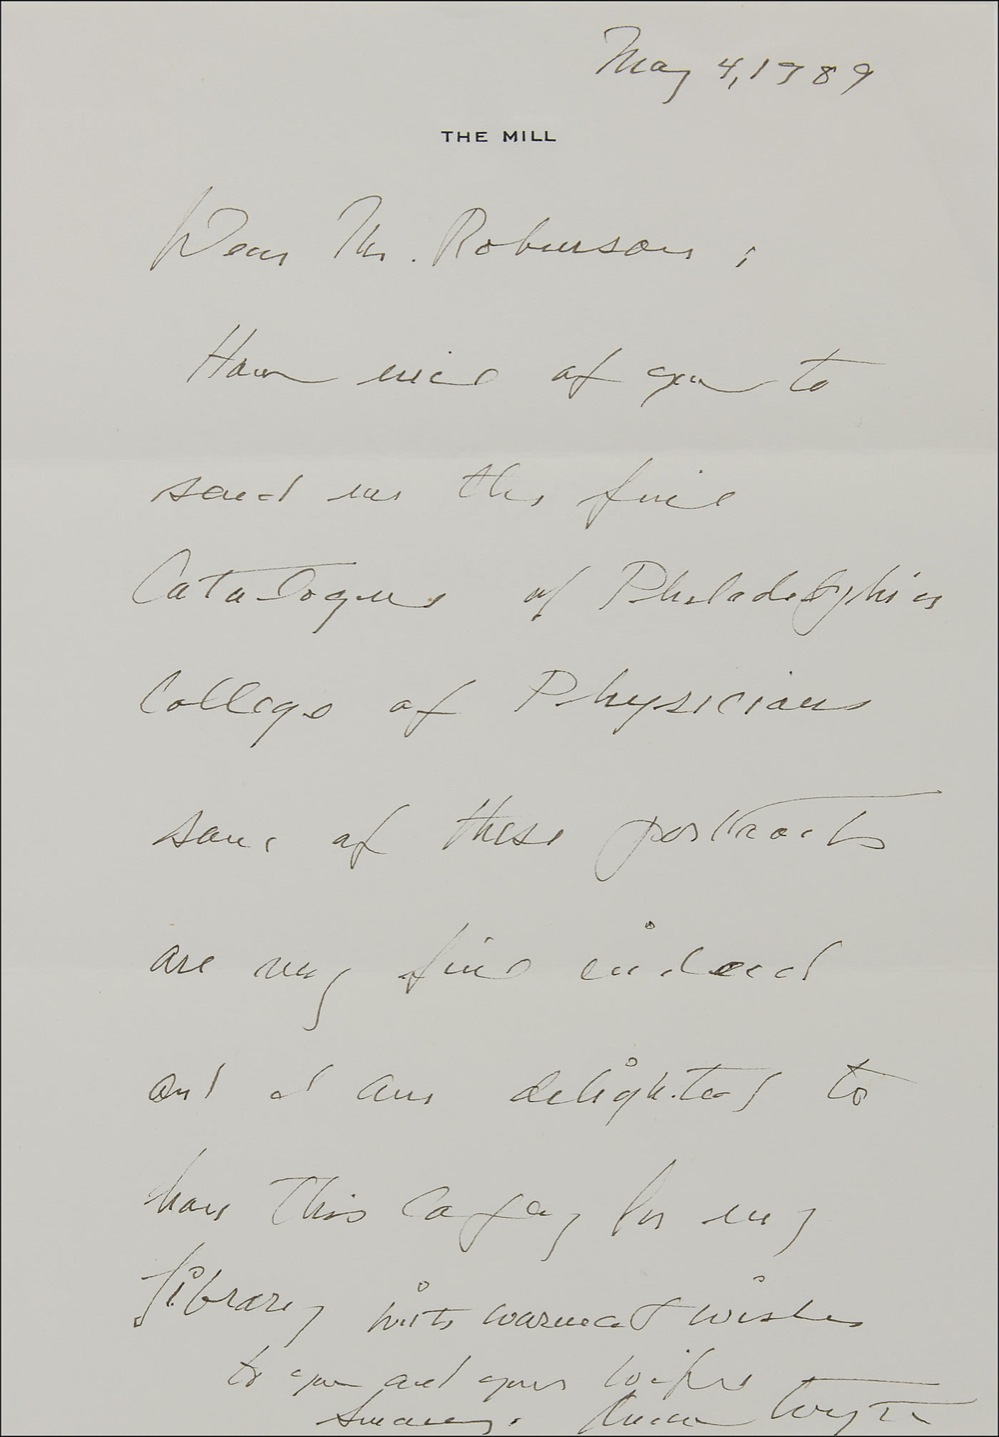 May 4, 1989
THE MILL
Dear Mr. Roberson;
How nice of you to
send me the fine
Catalogue of Philadelphia
College of Physicians
some of these portraits
are very fine indeed
and I am delighted to
have this copy for my
library with warmest wishes
to you and your wife
Sincerely, Andrew Wyeth